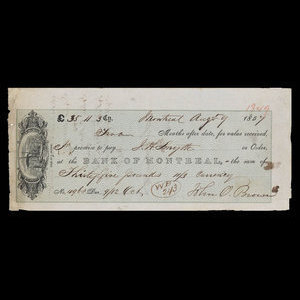 £ 35.11.3 Cy. Montreal, Augt 9 1857
Months after date, for value received,
I promise to pay J. H. Smyth or Order,
at the BANK OF MONTREAL, the sum of
Thirty five pounds 11/3 currency
No. 4960 Due 9/12 Oct. John O. Brown